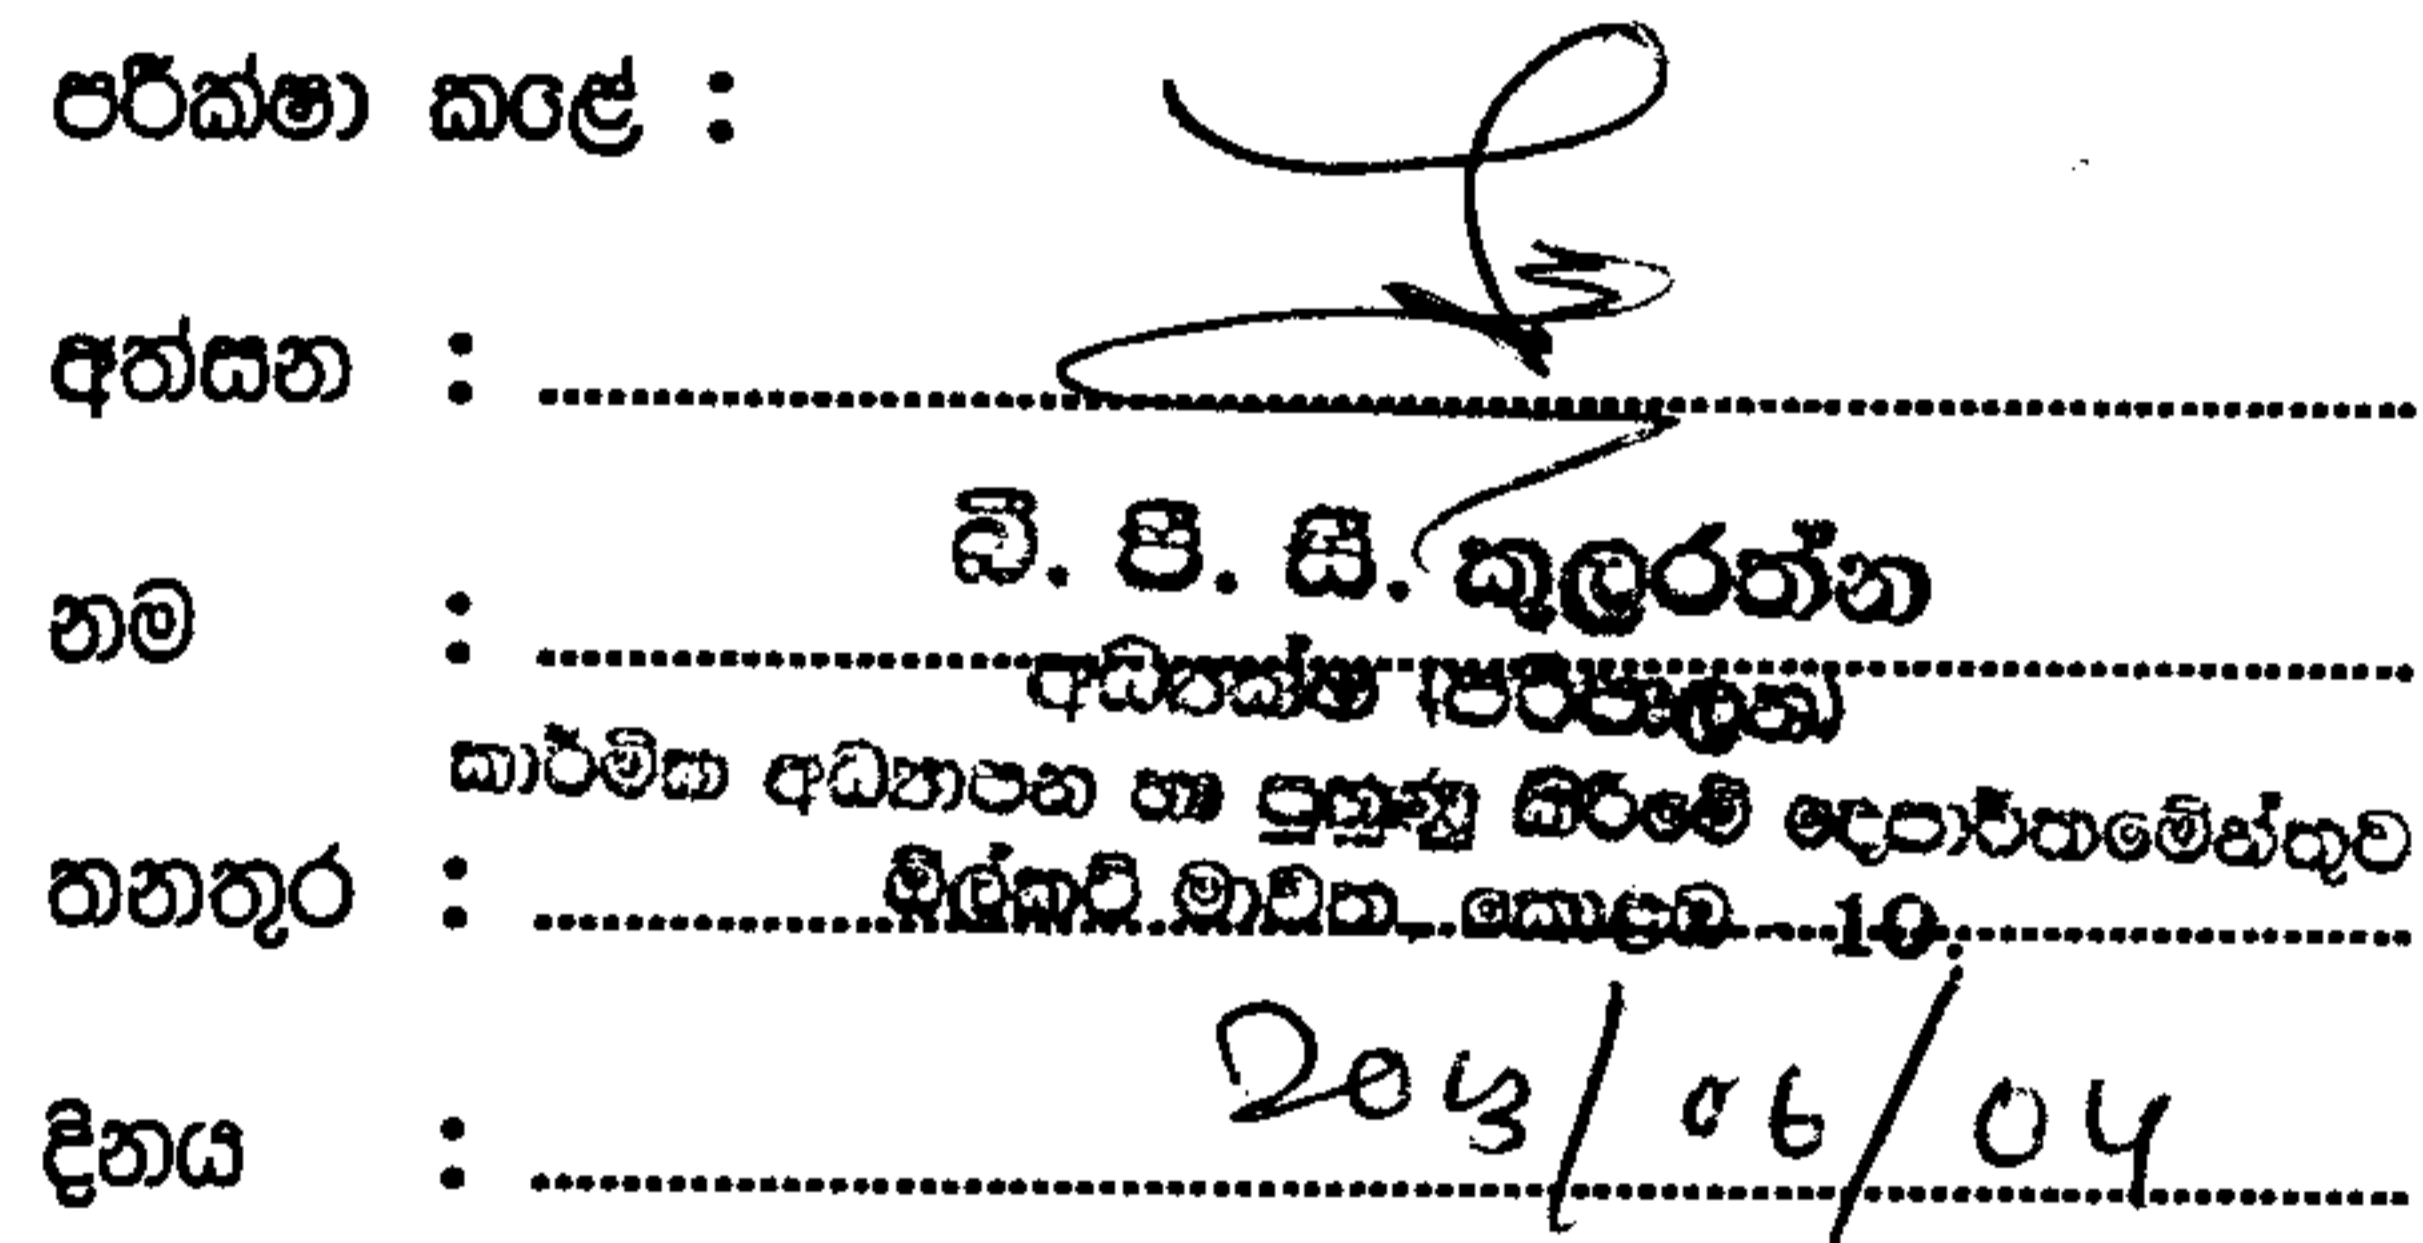 පරීක්ෂා කළේ :
අත්සන :
බී. පී. සී. කුලරත්න
නම :
අධ්‍යක්ෂ (පරිපාලන)
කාර්මික අධ්‍යාපන හා පුහුණු කිරීමේ දෙපාර්තමේන්තුව
තනතුර : ඕල්කට් මාවත, කොළඹ - 10.
දිනය : 2013/06/04